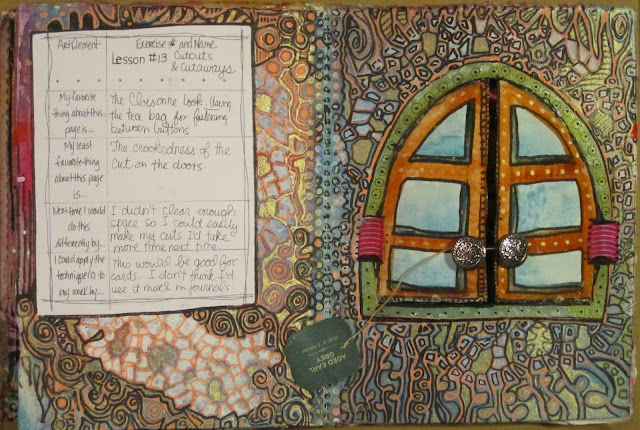 Art Element
Exercise # and Name
Lesson #13 Cutouts
& Cutaways
My favorite
thing about this
page is...
The Cloisonne Look. Using
the tea bag for fastening
between buttons
My least
favorite thing
about this page
is...
The crookedness of the
cut on the doors.
Next time I would
do this
differently by...
I didn't clear enough
space so I could easily
make my cuts. I'd take
more time next time.
I could apply the
technique(s) to
my work by...
This would be good for
cards. I don't think I'd
use it much in journals
AGED EARL
GREY